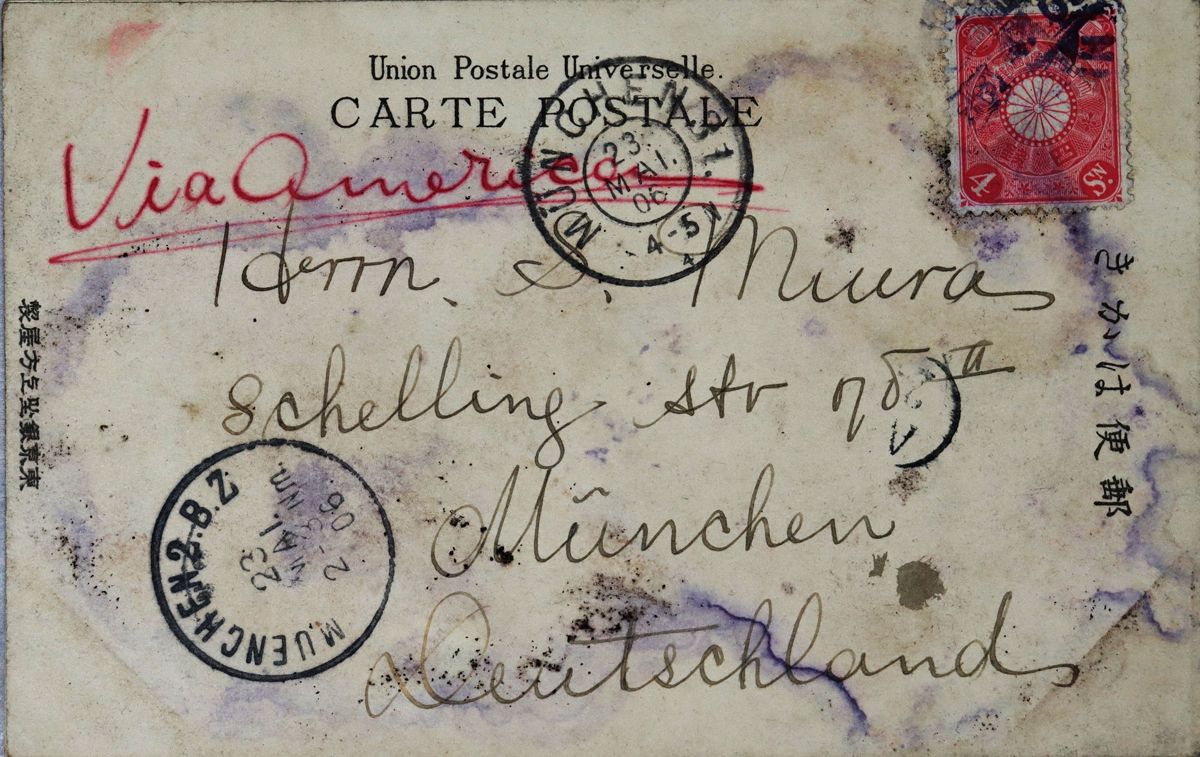 Union Postale Universelle.
CARTE POSTALE
Via America
MÜNCHEN 31.
23.
MAI.
06
4-5 N
4 SN.
Herrn. S. Miura
Schelling str II
München
Deutschland
MUENCHEN 2.B.Z
23
MAI.
2-3 Nm
06.
郵便はかき
東京銀座上方屋製